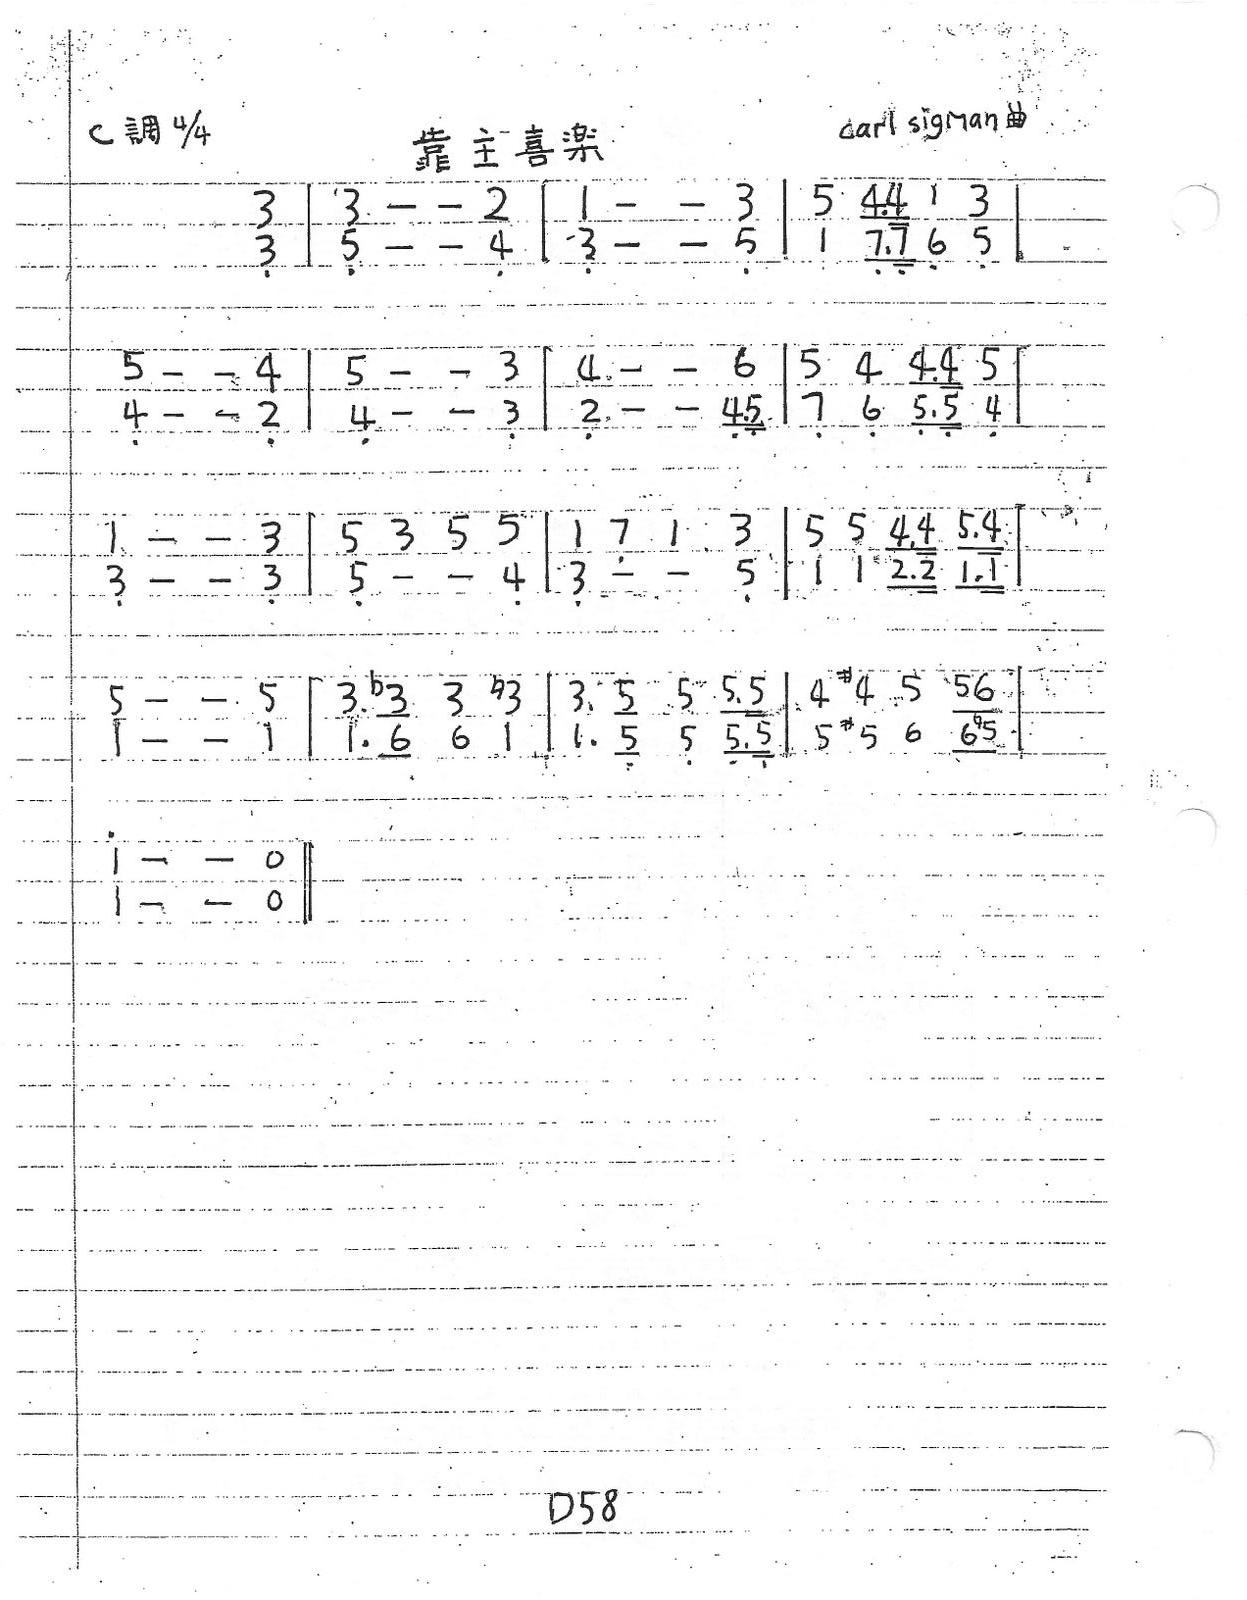 C調 4/4
靠主喜楽
carl sigman曲
3 | 3 - - 2 | 1 - - 3 | 5 4.4 1 3 |
3 | 5 - - 4 | 3 - - 5 | 1 7.7 6 5 |
5 - - 4 | 5 - - 3 | 4 - - 6 | 5 4 4.4 5 |
4 - - 2 | 4 - - 3 | 2 - - 4.5 | 7 6 5.5 4 |
1 - - 3 | 5 3 5 5 | 1 7 1 3 | 5 5 4.4 5.4 |
3 - - 3 | 5 - - 4 | 3 - - 5 | 1 1 2.2 1.1 |
5 - - 5 | 3. ♭3 3 ♮3 | 3. 5 5 5.5 | 4 #4 5 56 |
1 - - 1 | 1. 6 6 1 | 1. 5 5 5.5 | 5 #5 6 6♮5 |
1 - - 0 ||
1 - - 0 ||
D58